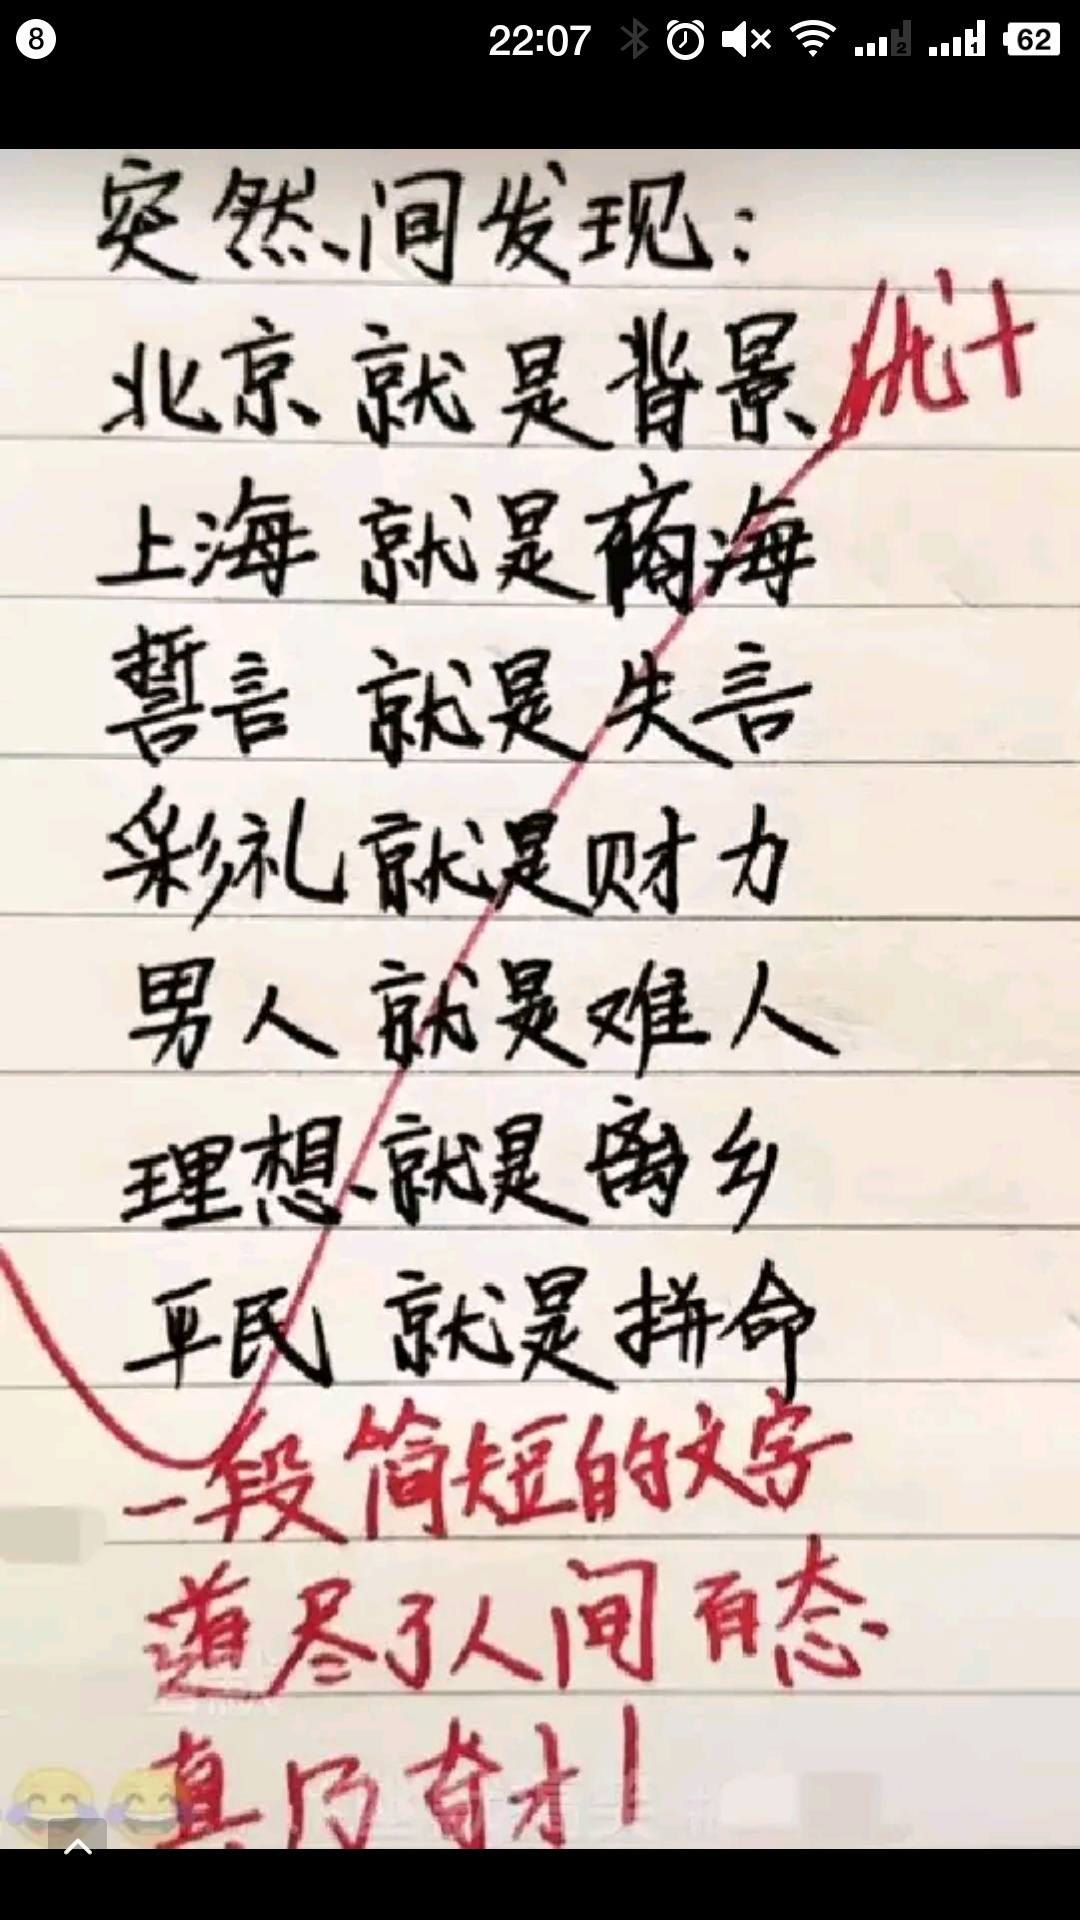 8 22:07 2 1 62
突然间发现:
优+
北京就是背景
上海就是商海
誓言就是失言
彩礼就是财力
男人就是难人
理想就是离乡
平民就是拼命
一段简短的文字
道尽了人间百态
真乃奇才!